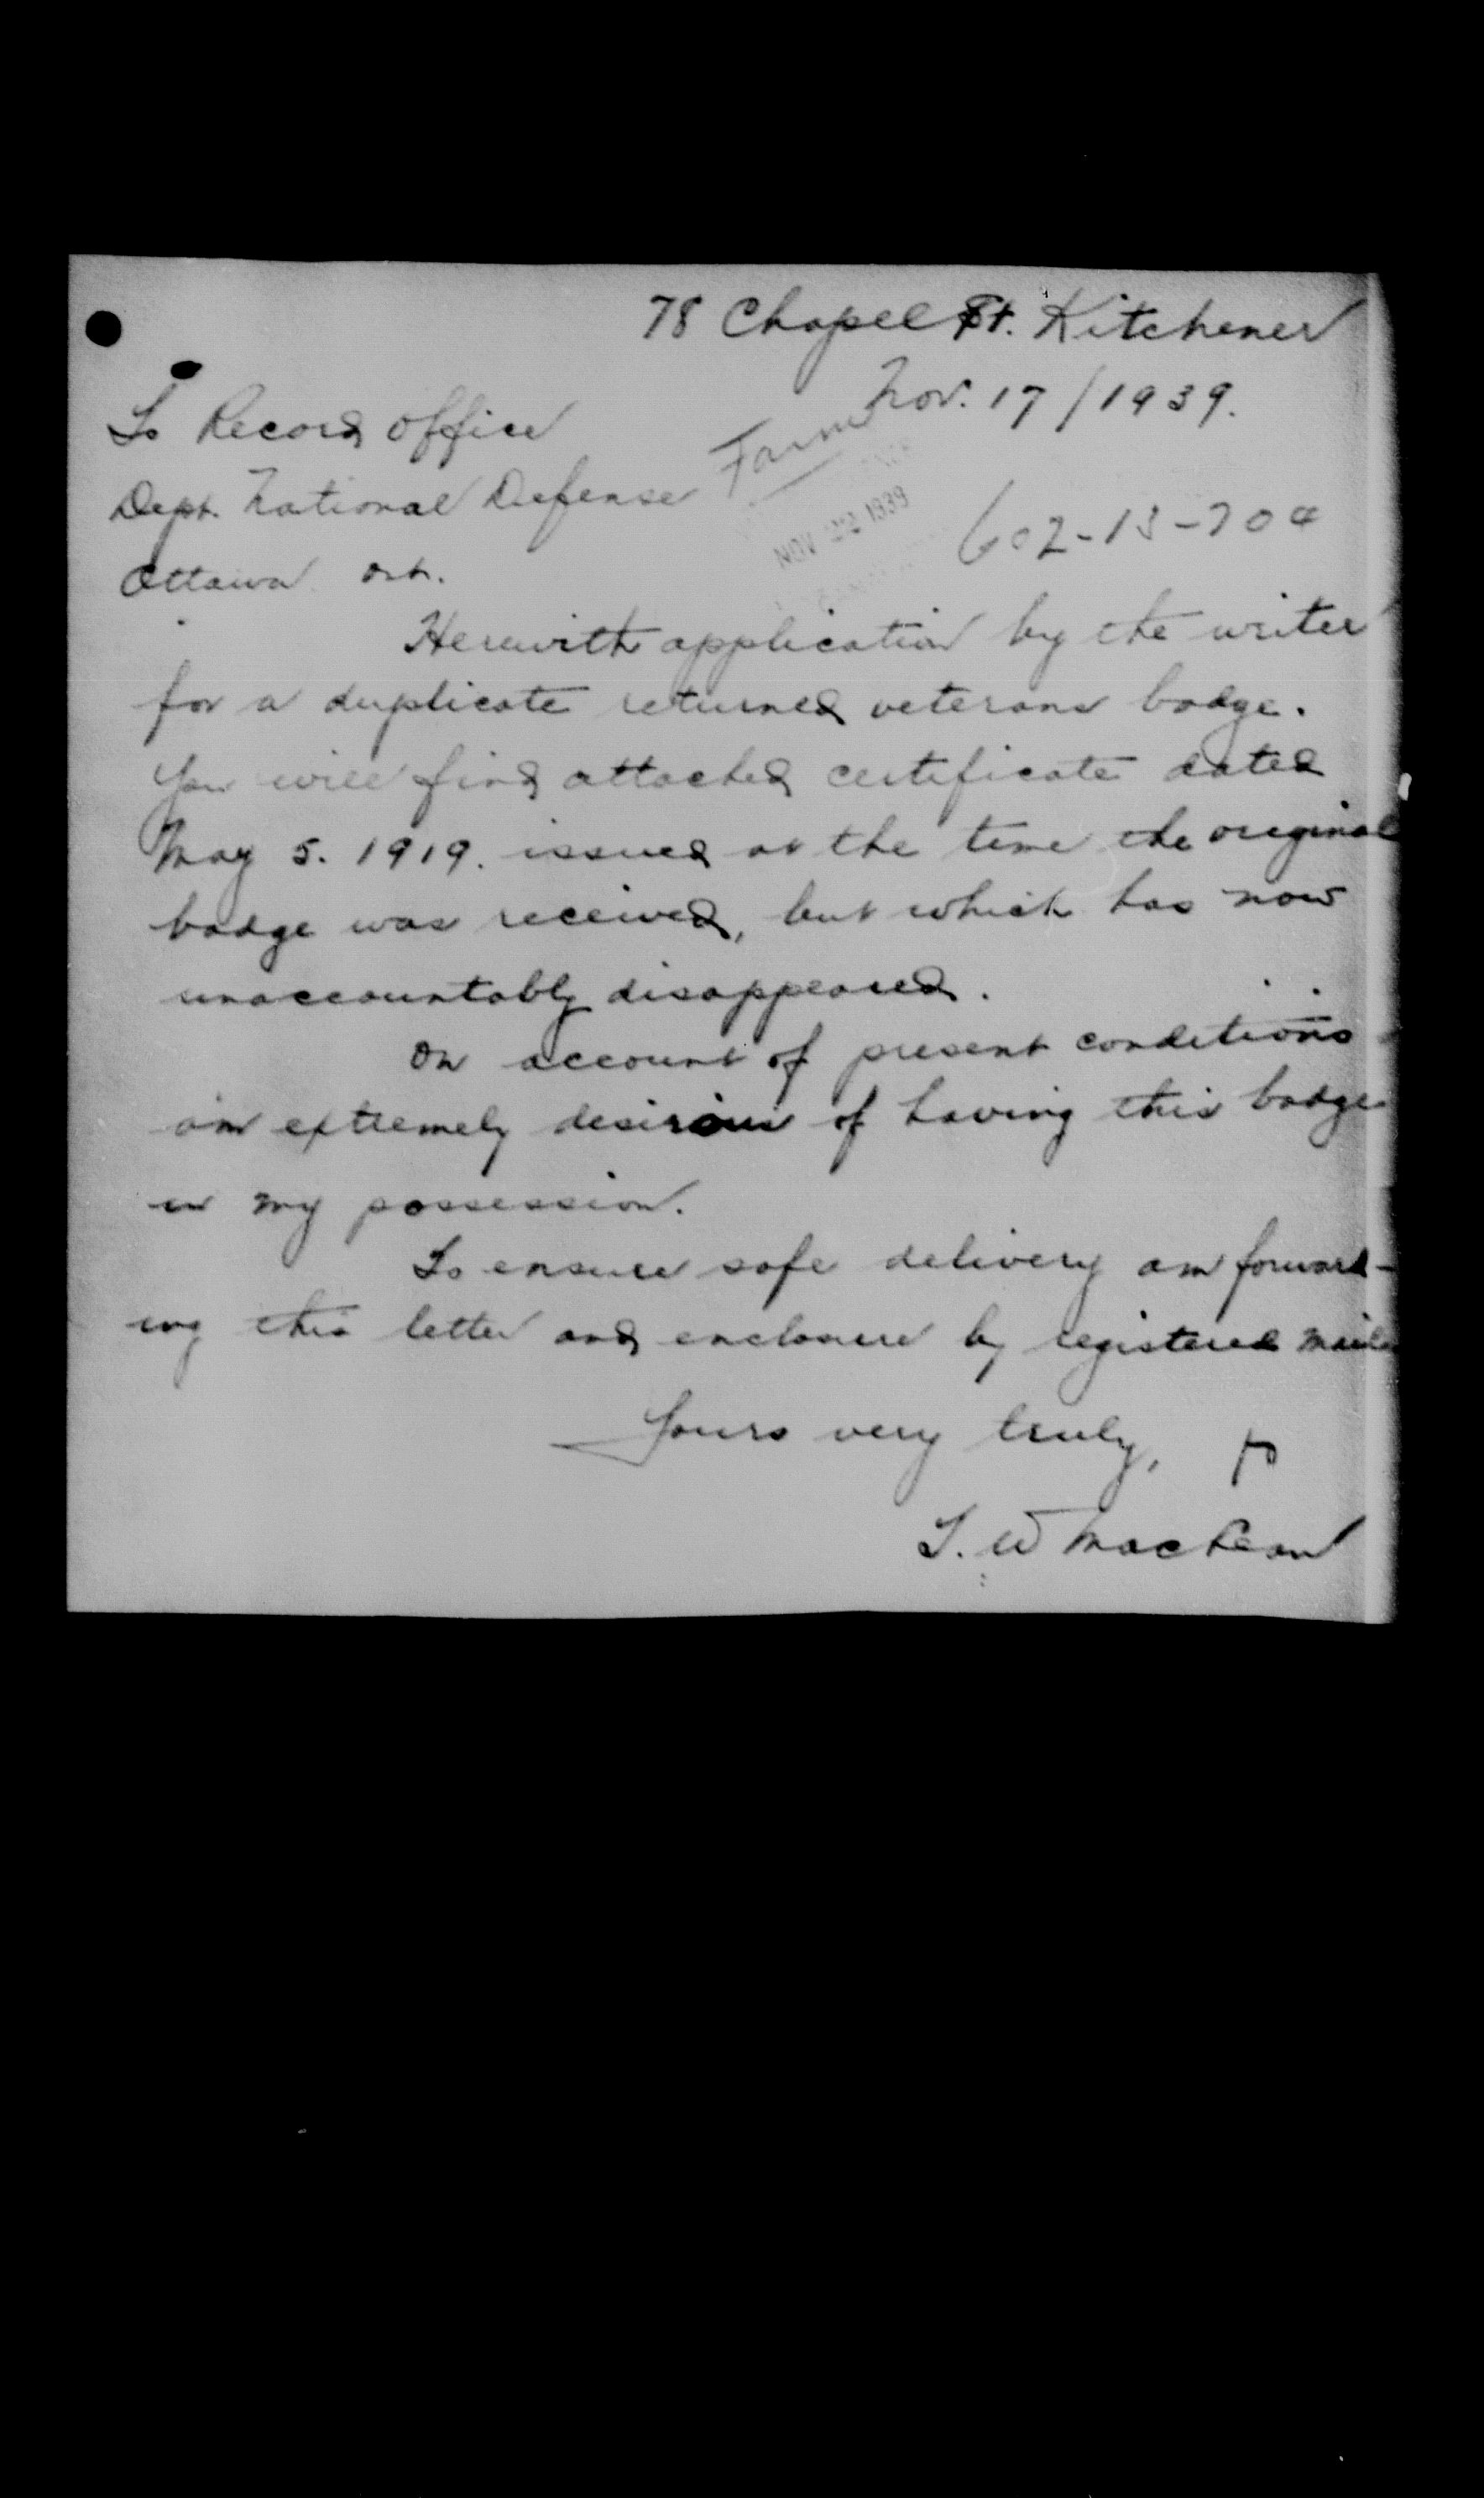 78 Chapel St. Kitchener
Nov. 17/1939.
To Record Office
Dept. National Defense
NOV 22 1939
602-13-704
Ottawa Ont.
Herewith application by the writer
for a duplicate returned veterans badge.
You will find attached certificate dated
May 5. 1919. issued at the time the original
badge was received, but which has now
unaccountably disappeared.
On account of present conditions
am extremely desirous of having this badge
in my possession.
To ensure safe delivery am forward-
ing this letter and enclosure by registered mail.
Yours very truly,
T. W MacLean